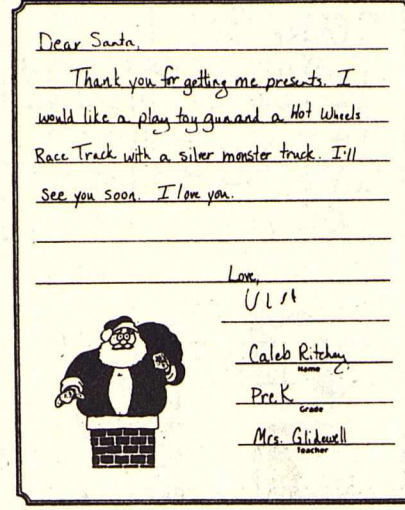 Dear Santa,
Thank you for getting me presents. I
would like a play toy gun and a Hot Wheels
Race Track with a silver monster truck. I'll
see you soon. I love you.
Love,
Caleb Ritchey
Name
Pre.K
Grade
Mrs. Glidewell
Teacher